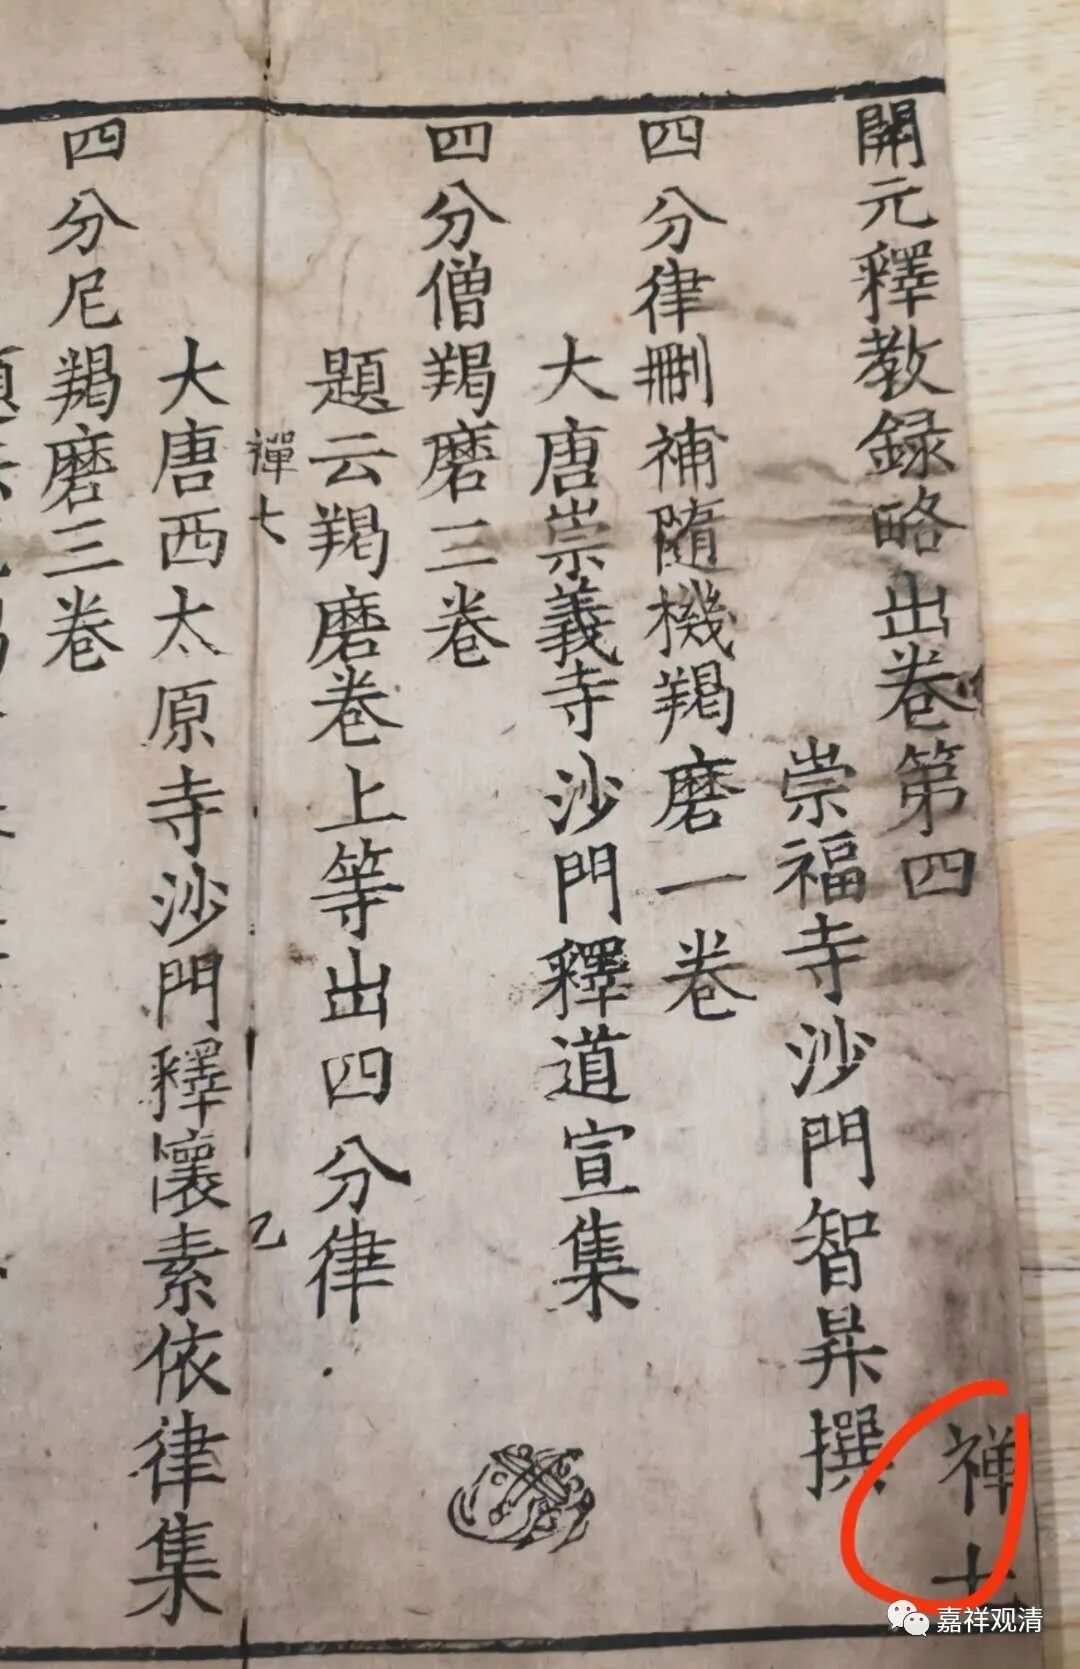 開元釋教録略出卷第四
禅七
崇福寺沙門智昇撰
四分律刪補隨機羯磨一卷
大唐崇義寺沙門釋道宣集
四分僧羯磨三卷
題云羯磨卷上等出四分律
禪七
乙
大唐西太原寺沙門釋懷素依律集
四分尼羯磨三卷
嘉祥观清